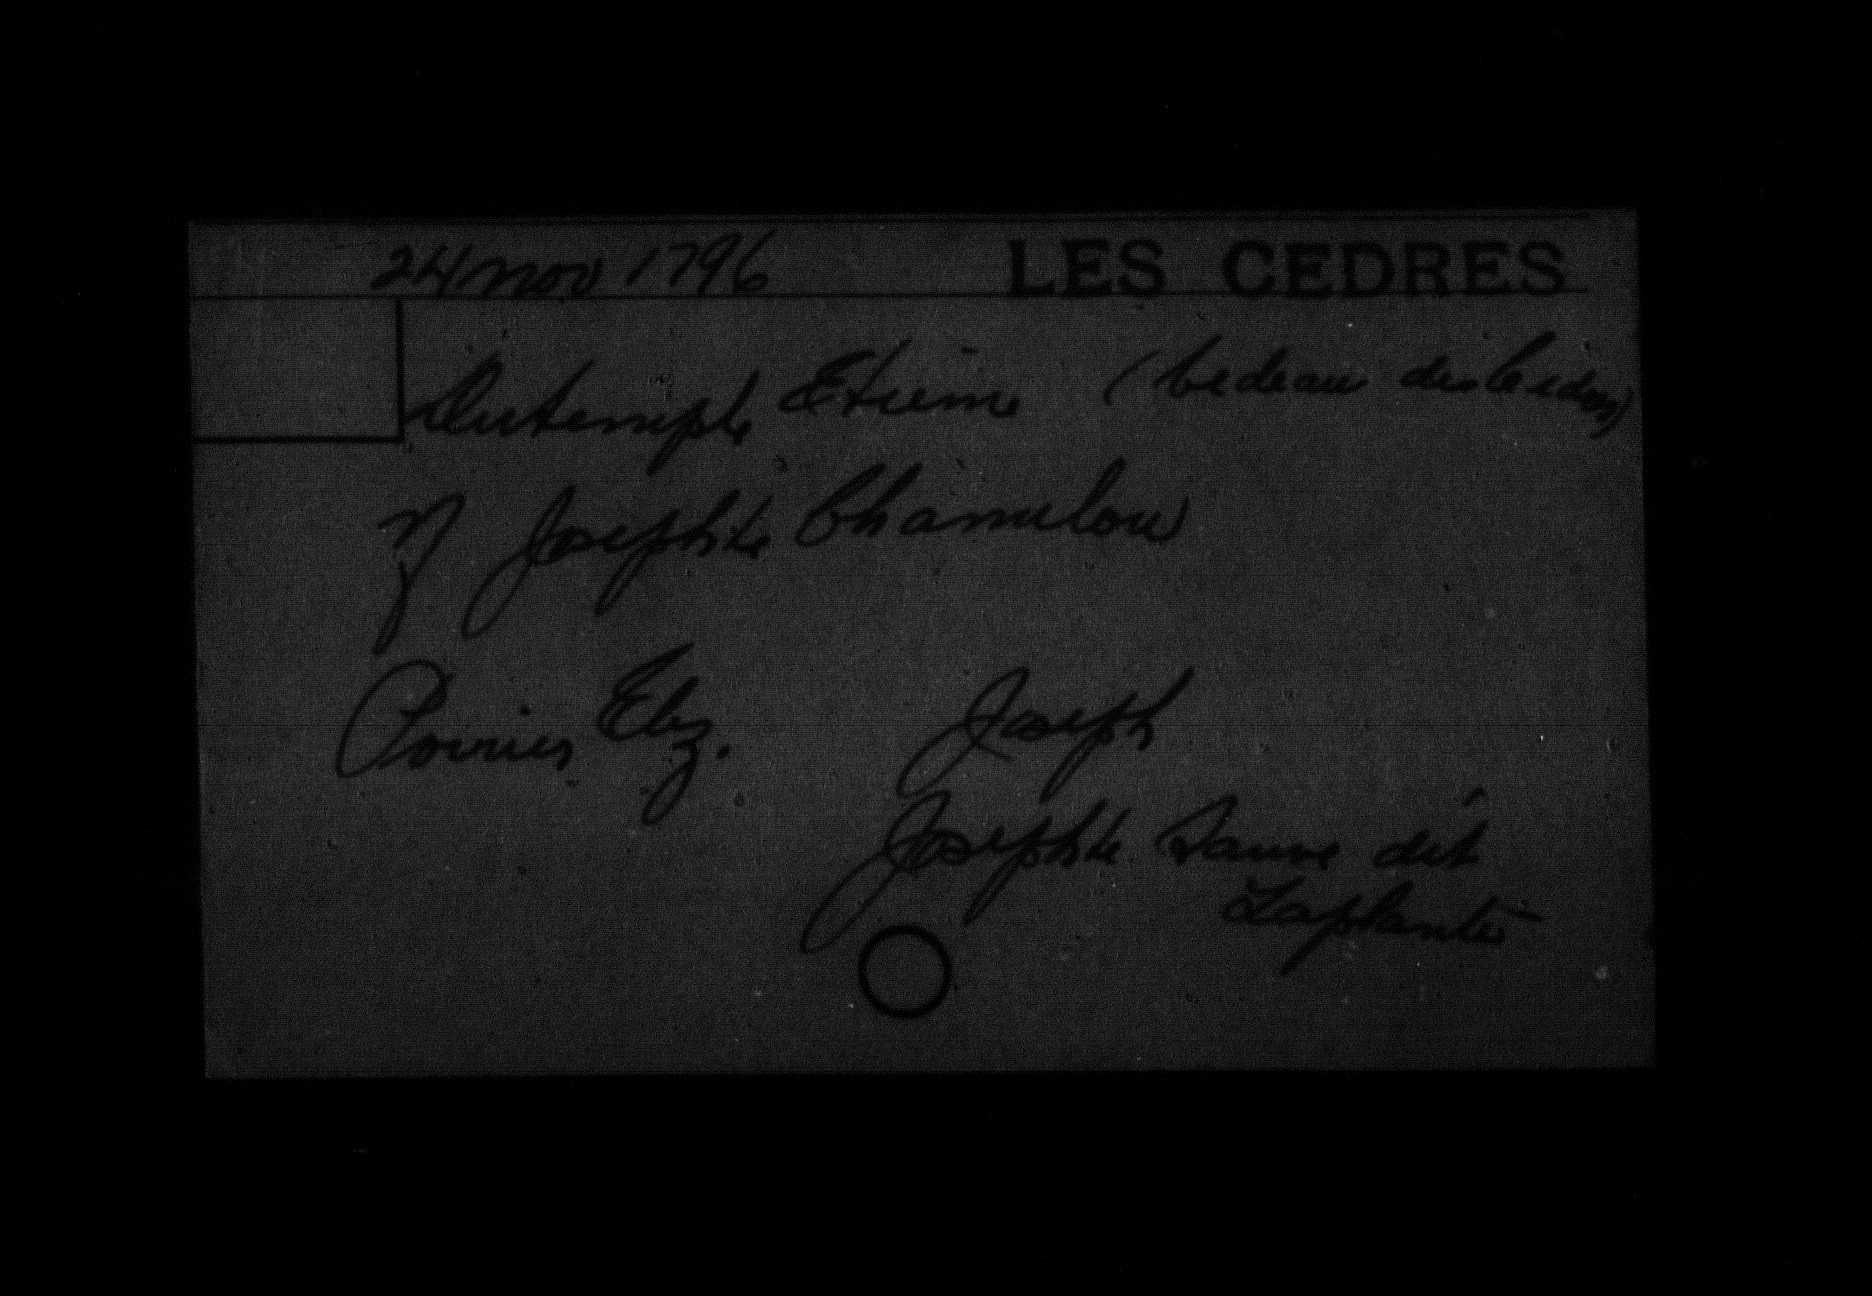 24 nov 1796 LES CEDRES
Dutemple Etienne (bedeau des Cedres)
V Josephte Chamelou
Poirier Elz. Joseph
Josephte Sauve dit
Laplante